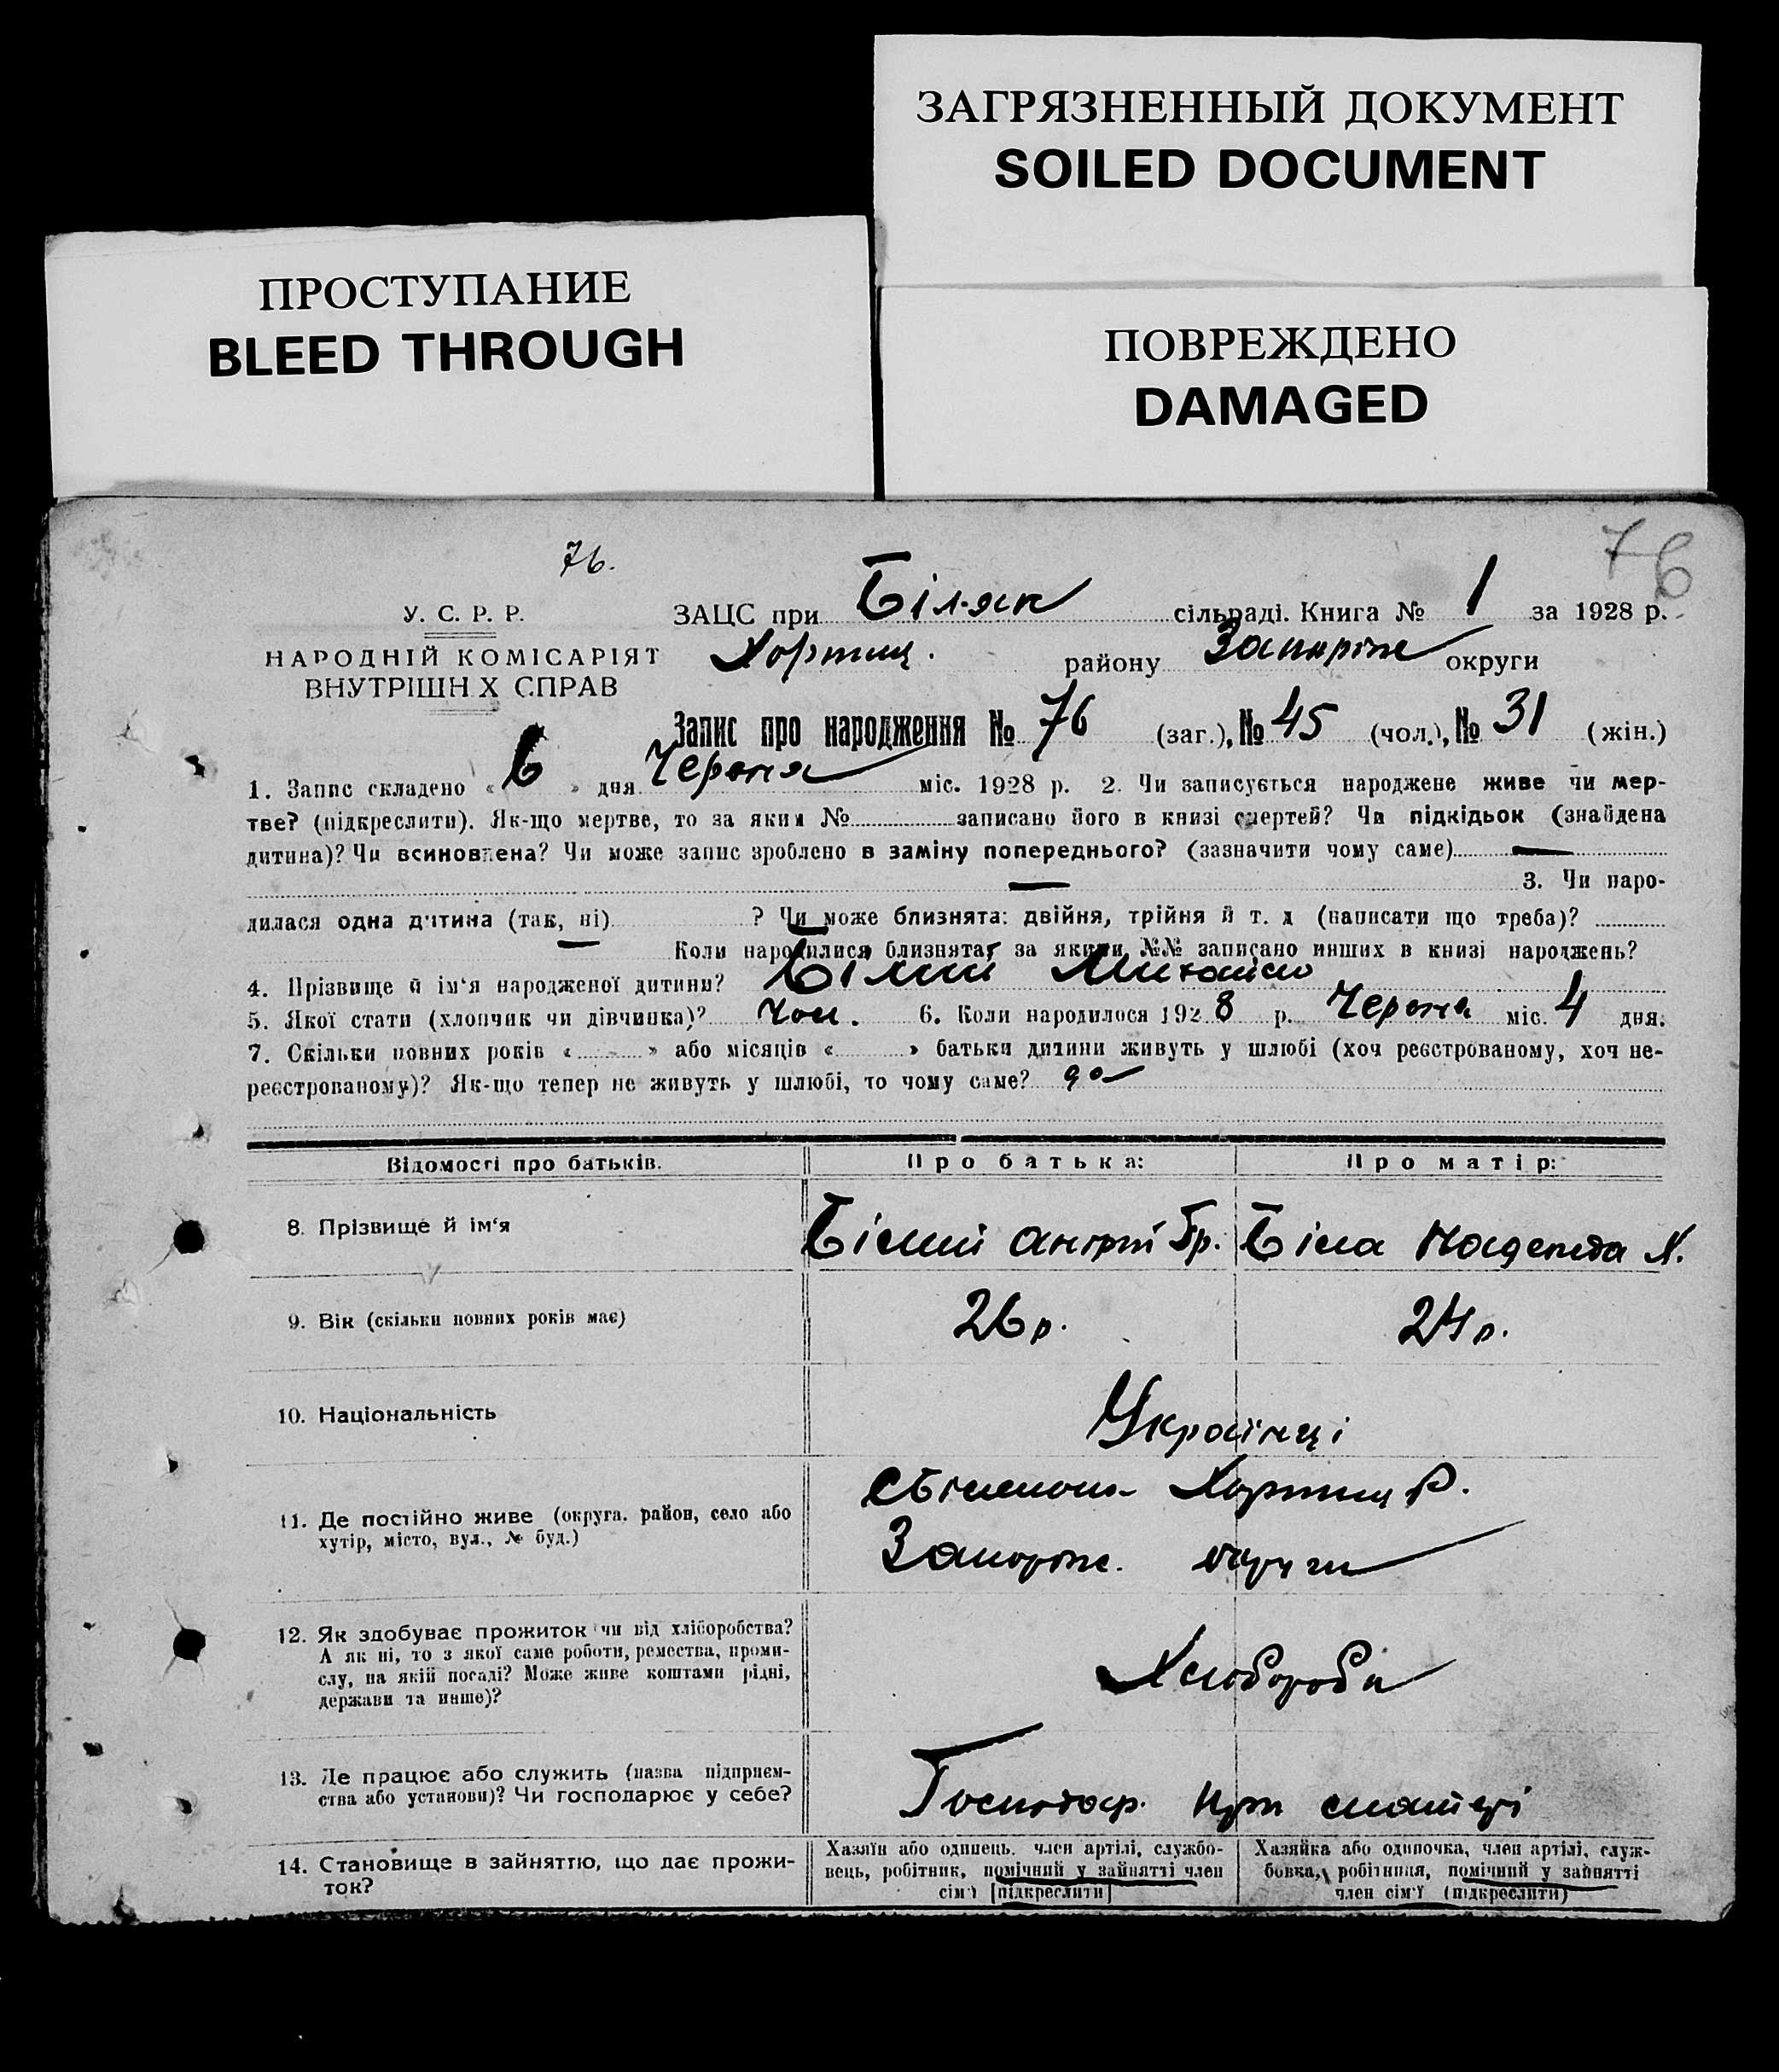 ЗАГРЯЗНЕННЫЙ ДОКУМЕНТ
SOILED DOCUMENT
ПРОСТУПАНИЕ
BLEED THROUGH
ПОВРЕЖДЕНО
DAMAGED
76.
76
У. С. Р. Р.
ЗАЦС при Біляк сільраді. Книга № 1 за 1928 р.
НАРОДНІЙ КОМІСАРІЯТ
ВНУТРІШН Х СПРАВ
Хортиц. району Запоріж округи
Запис про народження № 76 (заг.), № 45 (чол.), № 31 (жін.)
1. Запис складено « 6 » дня Червня міс. 1928 р. 2. Чи записується народжене живе чи мер-
тве? (підкреслити). Як-що мертве, то за яким № записано його в книзі смертей? Чи підкідьок (знайдена
дитина)? Чи всиновлена? Чи може запис зроблено в заміну попереднього? (зазначити чому саме) —
— 3. Чи наро-
дилася одна дитина (так, ні) ? Чи може близнята: двійня, трійня й т. д (написати що треба)?
Коли народилися близнята, за якими №№ записано инших в книзі народжень?
4. Прізвище й ім'я народженої дитини? Білий Михайло
5. Якої стати (хлопчик чи дівчинка)? Чол. 6. Коли народилося 1928 р. Червня міс. 4 дня.
7. Скільки повних років « » або місяців « » батьки дитини живуть у шлюбі (хоч реєстрованому, хоч не-
реєстрованому)? Як-що тепер не живуть у шлюбі, то чому саме?
Відомості про батьків. Про батька: Про матір:
8. Прізвище й ім'я Білий Андрій Гр. Біла Надежда Х.
9. Вік (скільки повних років має) 26 р. 24 р.
10. Національність Українці
11. Де постійно живе (округа, район, село або
хутір, місто, вул., № буд.)
Хортиц Р.
Запоріж. округи
12. Як здобуває прожиток чи від хліборобства?
А як ні, то з якої саме роботи, ремества, проми-
слу, на якій посаді? Може живе коштами рідні,
держави та инше)?
Хлібороби
13. Де працює або служить (назва підприєм-
ства або установи)? Чи господарює у себе?
Господар. при
14. Становище в зайняттю, що дає прожи-
ток?
Хазяїн або одинець, член артілі, службо-
вець, робітник, помічний у зайнятті член
сім'ї [підкреслити]
Хазяйка або одиночка, член артілі, служ-
бовка, робітниця, помічний у зайнятті
член сім'ї (підкреслити)